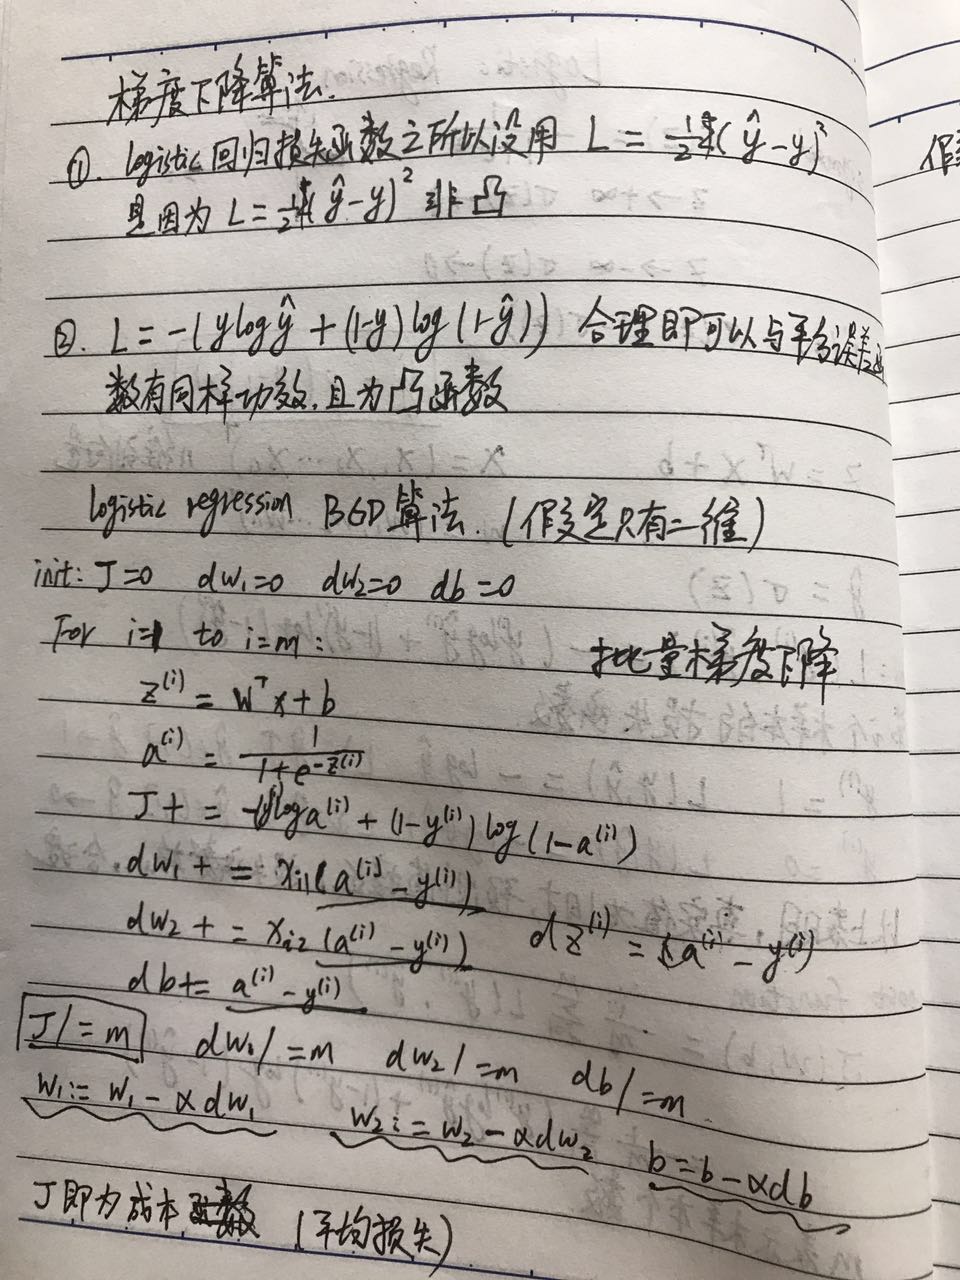 梯度下降算法.
①. logistic 回归损失函数之所以没用 L = 1/2 (ŷ-y)²
是因为 L = 1/2 (ŷ-y)² 非凸
②. L = -(ylogŷ + (1-y)log(1-ŷ)) 合理即可以与平方误差函
数有同样功效,且为凸函数
logistic regression BGD算法. (假定只有二维)
init: J=0 dw₁=0 dw₂=0 db=0
For i=1 to i=m: 批量梯度下降
z⁽ⁱ⁾ = wᵀx+b
a⁽ⁱ⁾ = 1/(1+e^(-z⁽ⁱ⁾))
J += -y⁽ⁱ⁾loga⁽ⁱ⁾ + (1-y⁽ⁱ⁾)log(1-a⁽ⁱ⁾)
dw₁ += xᵢ₁(a⁽ⁱ⁾-y⁽ⁱ⁾)
dw₂ += xᵢ₂(a⁽ⁱ⁾-y⁽ⁱ⁾) dz⁽ⁱ⁾ = (a⁽ⁱ⁾-y⁽ⁱ⁾)
db += a⁽ⁱ⁾-y⁽ⁱ⁾
J/=m dw₁/=m dw₂/=m db/=m
w₁:=w₁-αdw₁ w₂:=w₂-αdw₂ b=b-αdb
J即为成本函数 (平均损失)